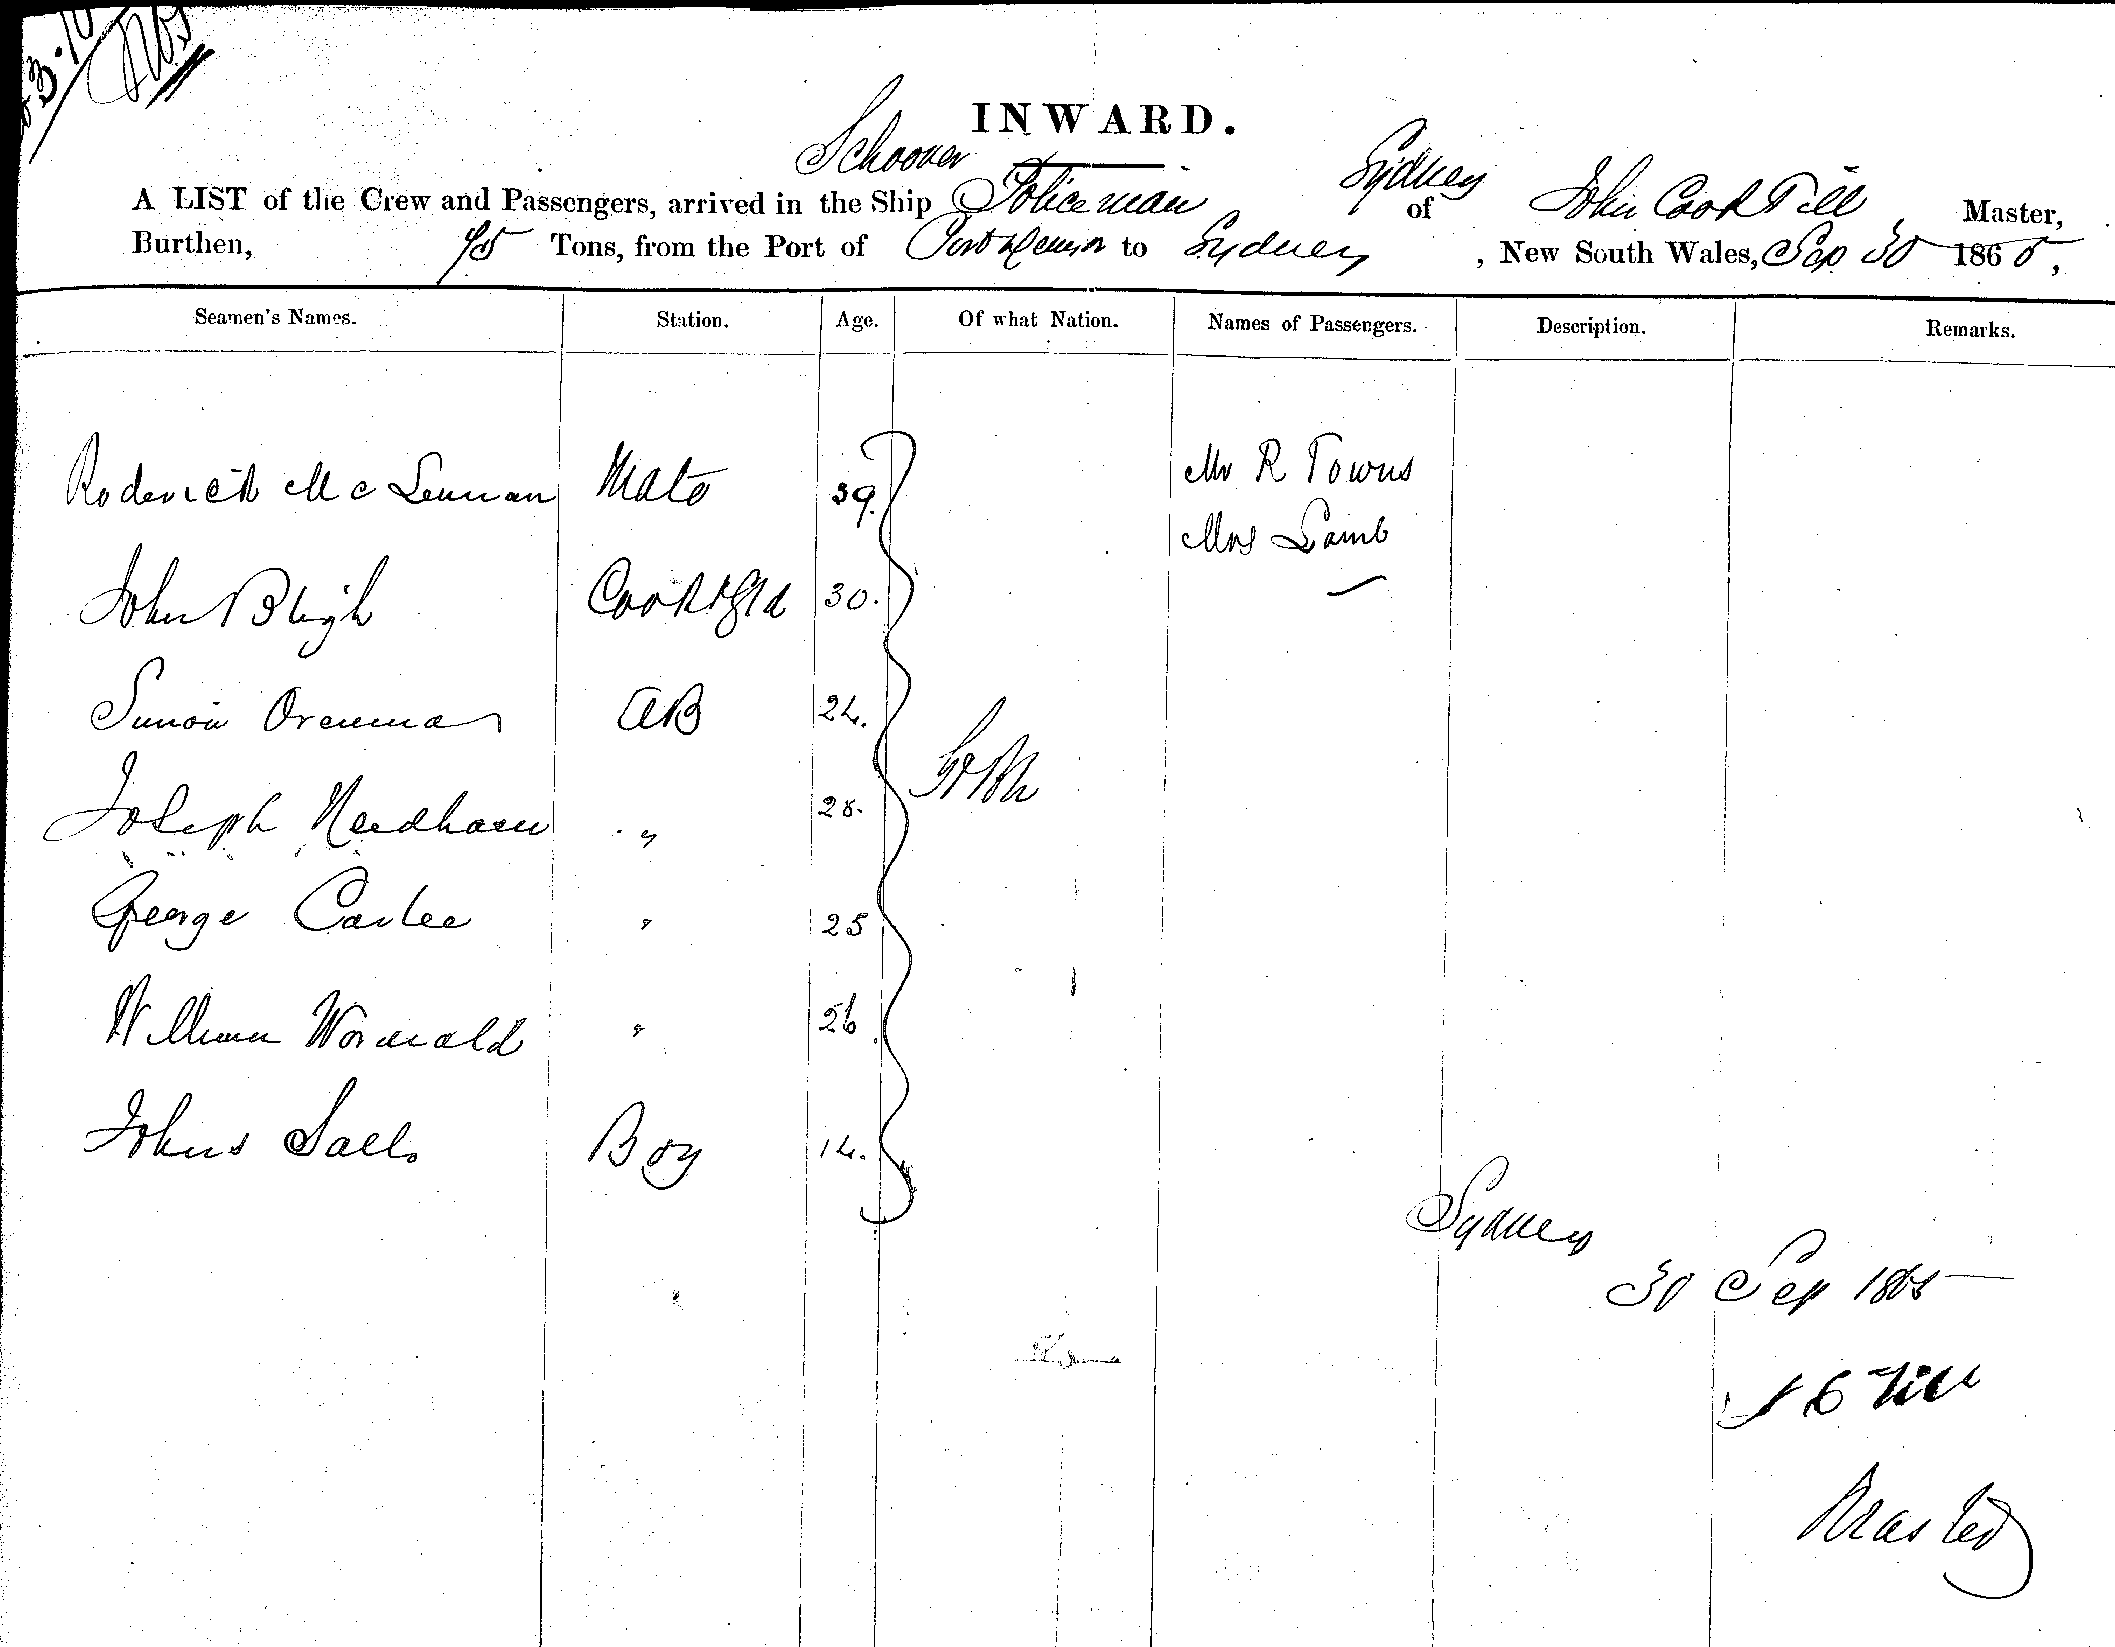 INWARD.
Schooner
A LIST of the Crew and Passengers, arrived in the Ship Policeman of Sydney John Cook Till, Master,
Burthen, 95 Tons, from the Port of Port Denison to Sydney, New South Wales, Sep 30 1865,
Seamen's Names. Station. Age. Of what Nation. Names of Passengers. Description. Remarks.
Roderick McLennan Mate 39. Mr R Towns
Mrs Lamb
John Bligh Cook & Std 30.
Simon AB 24.
Joseph Needham " 28.
George Carlee " 25
William Wormald " 26
Johns Salls Boy 14.
Sydney
30 Sep 1865
J C Till
Master